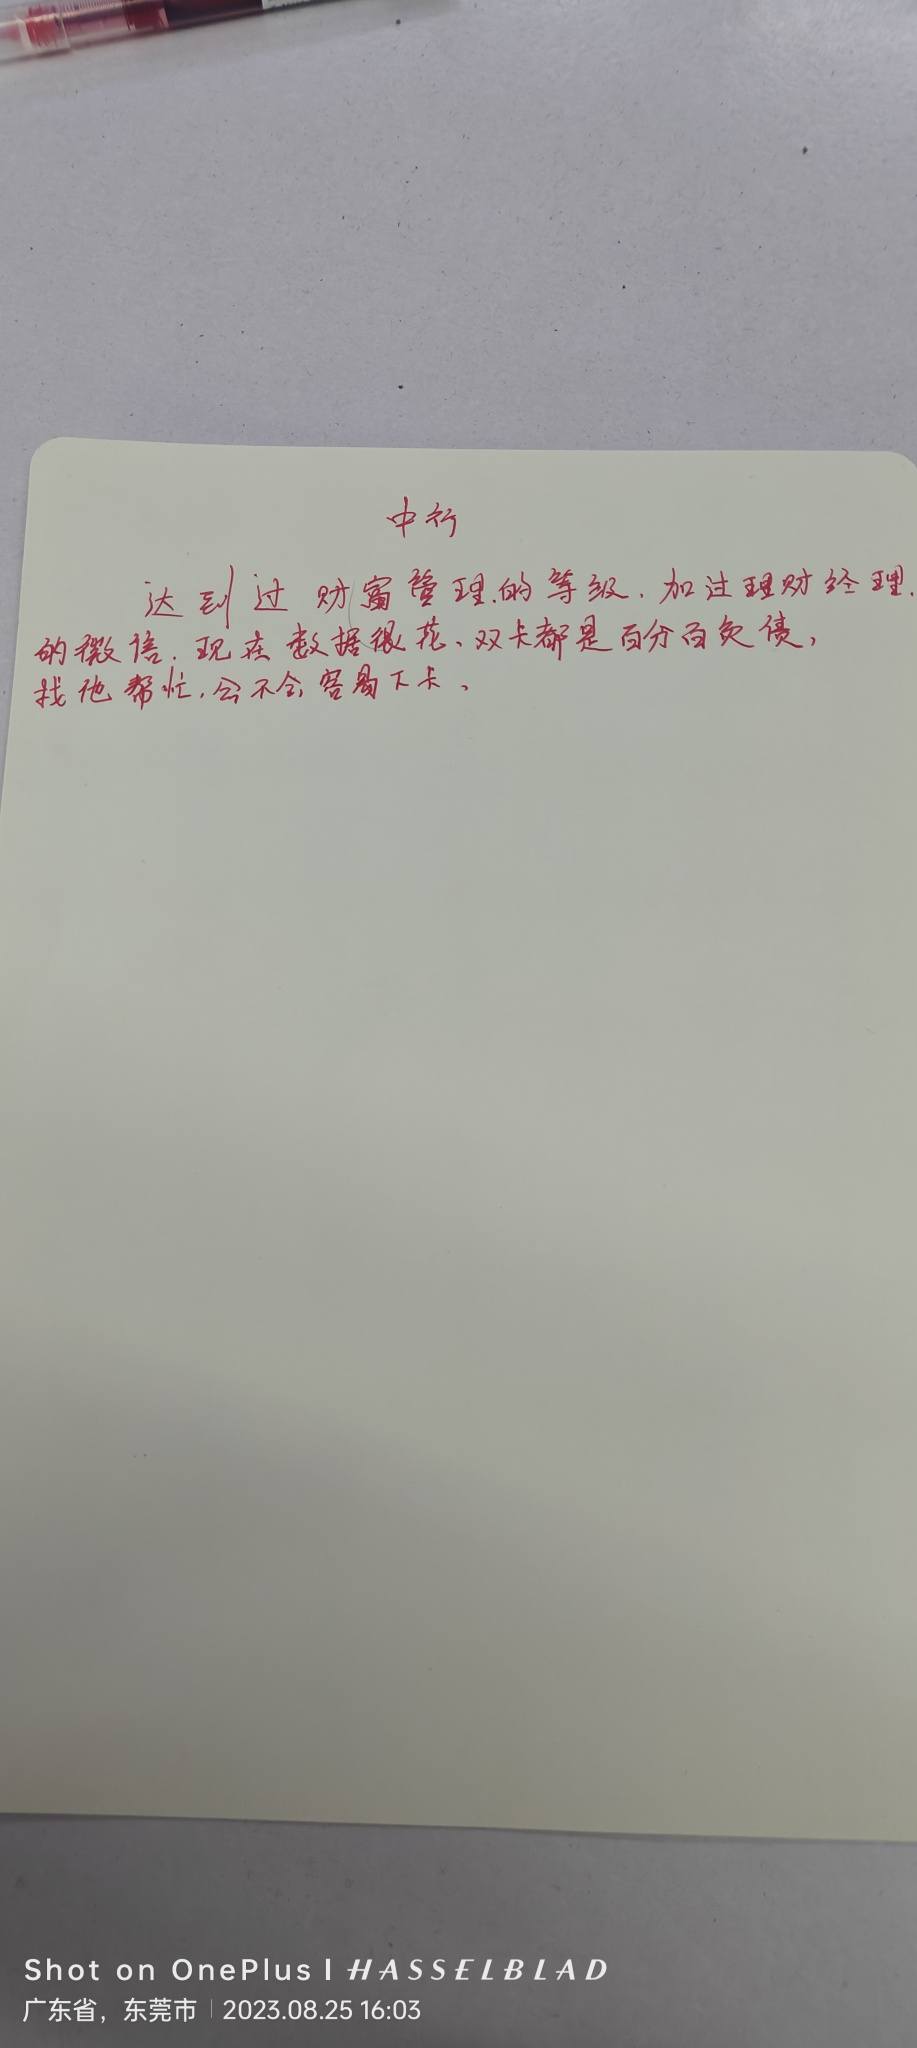 中行
达到过财富管理的等级.加过理财经理.
的微信.现在数据很花、双卡都是百分百负债,
找他帮忙,会不会容易下卡、
Shot on OnePlus | HASSELBLAD
广东省，东莞市 | 2023.08.25 16:03